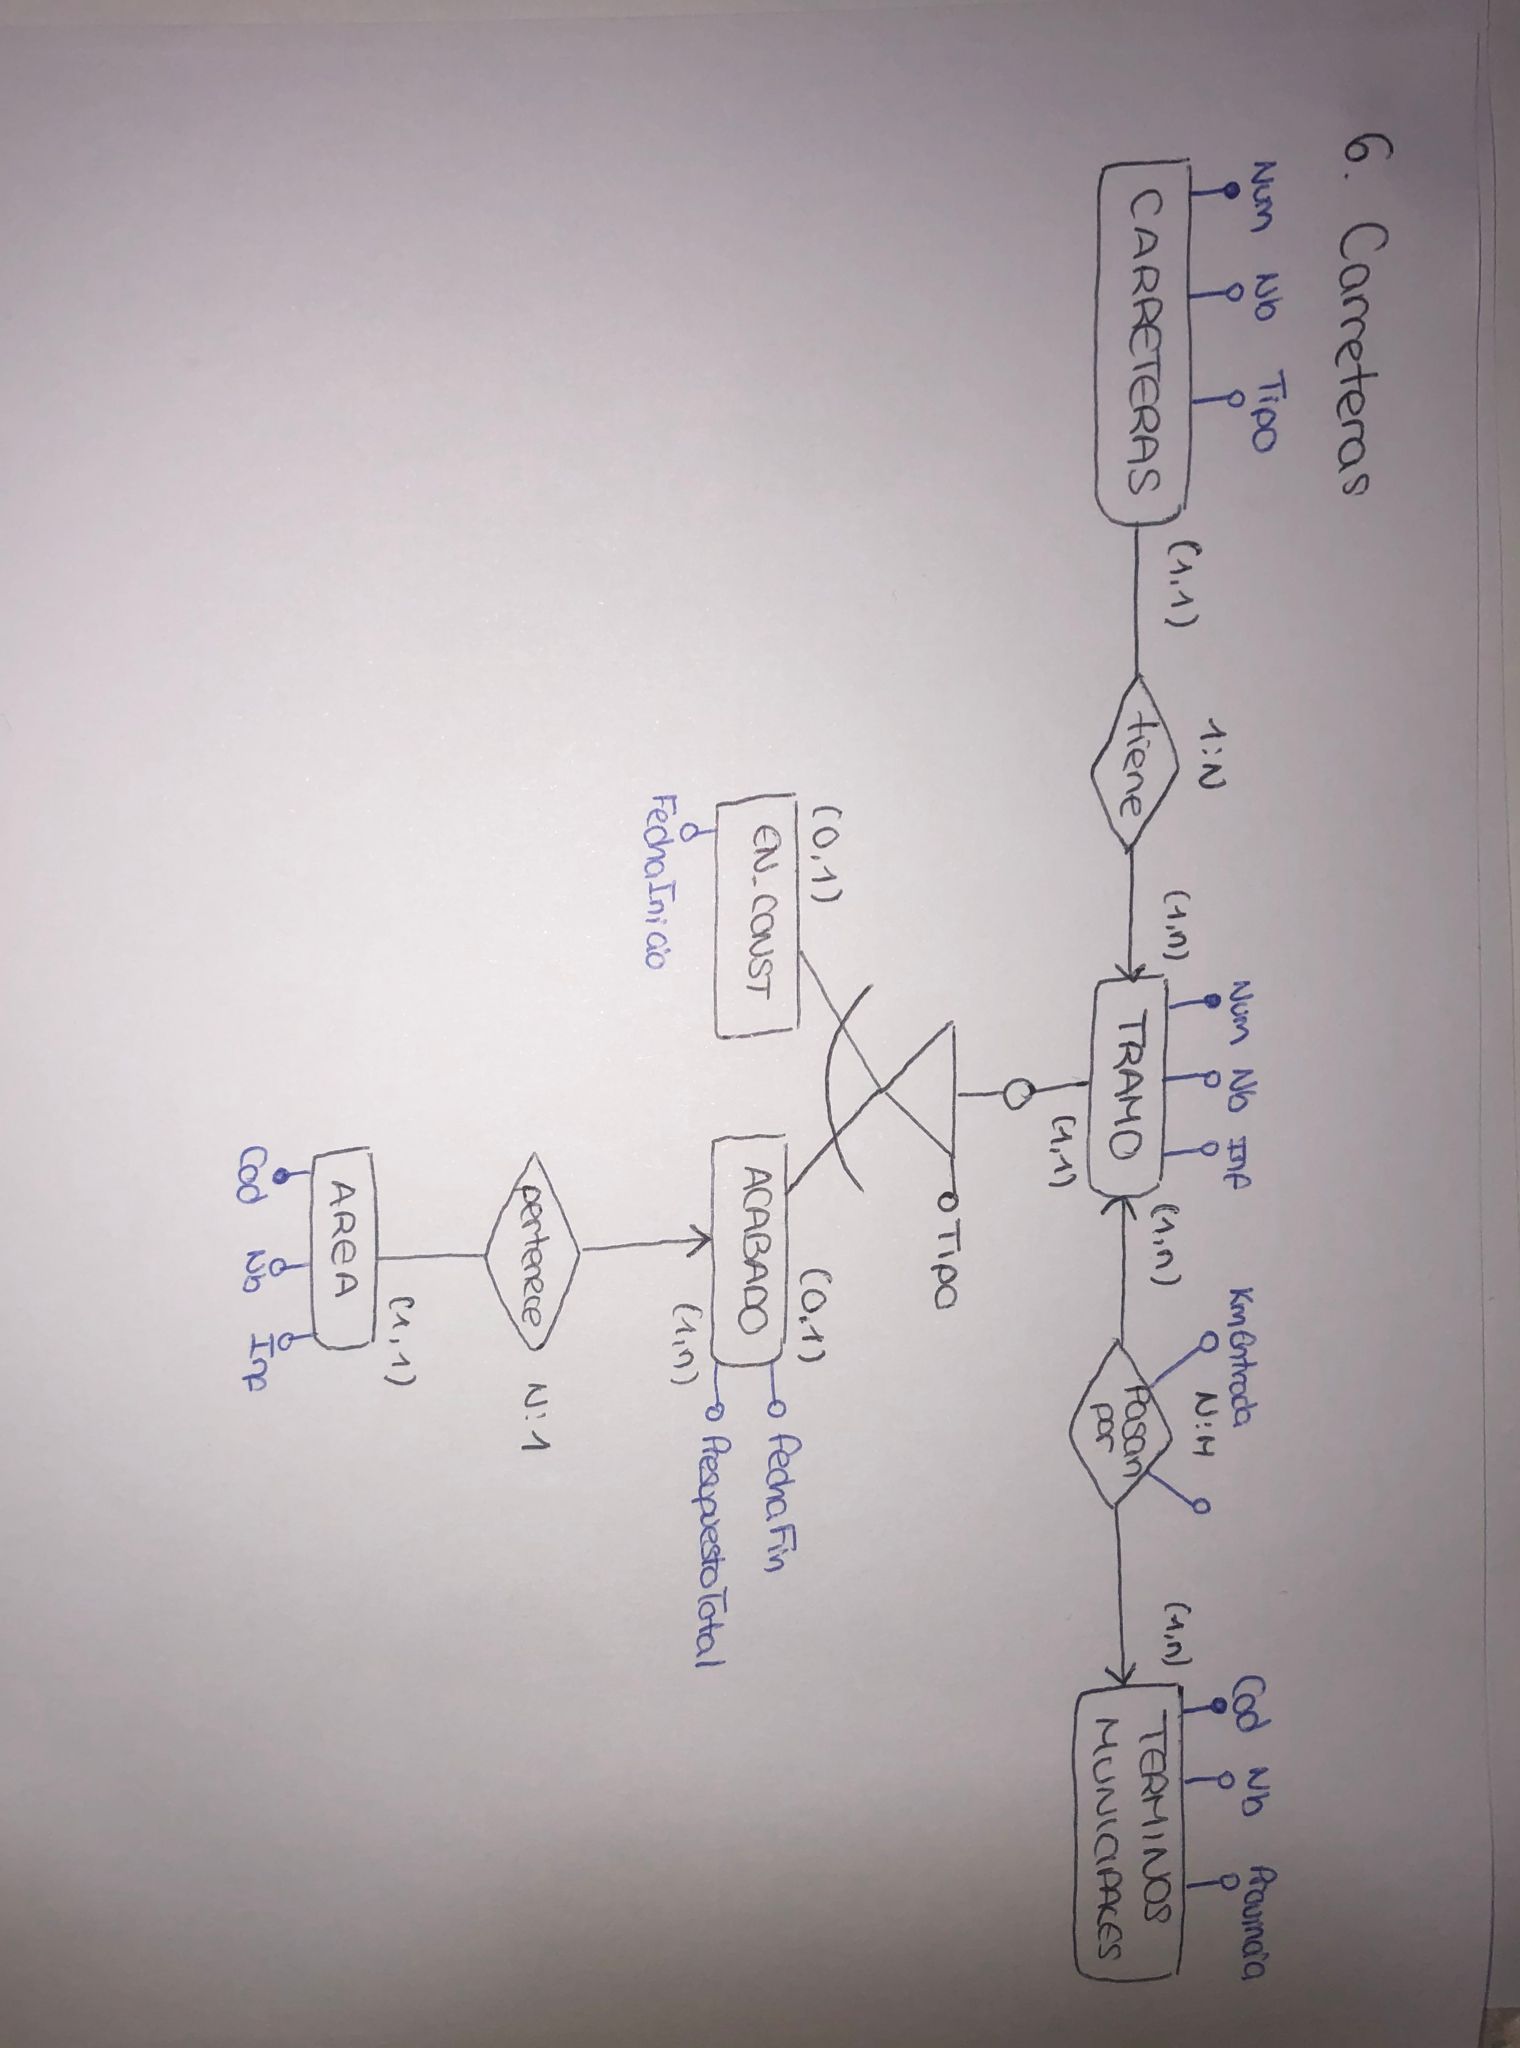 6. Carreteras
Num Nb Tipo
CARRETERAS
(1,1)
1:N
tiene
(1,n)
Num Nb Inf
TRAMO
(1,n)
KmEntrada
N:M
Pasan
por
(1,n)
Cod Nb Provincia
TERMINOS
MUNICIPALES
(1,1)
Tipo
(0,1)
EN_CONST
FechaInicio
(0,1)
ACABADO
(1,n)
FechaFin
PresupuestoTotal
pertenece
N:1
(1,1)
AREA
Cod Nb Inf